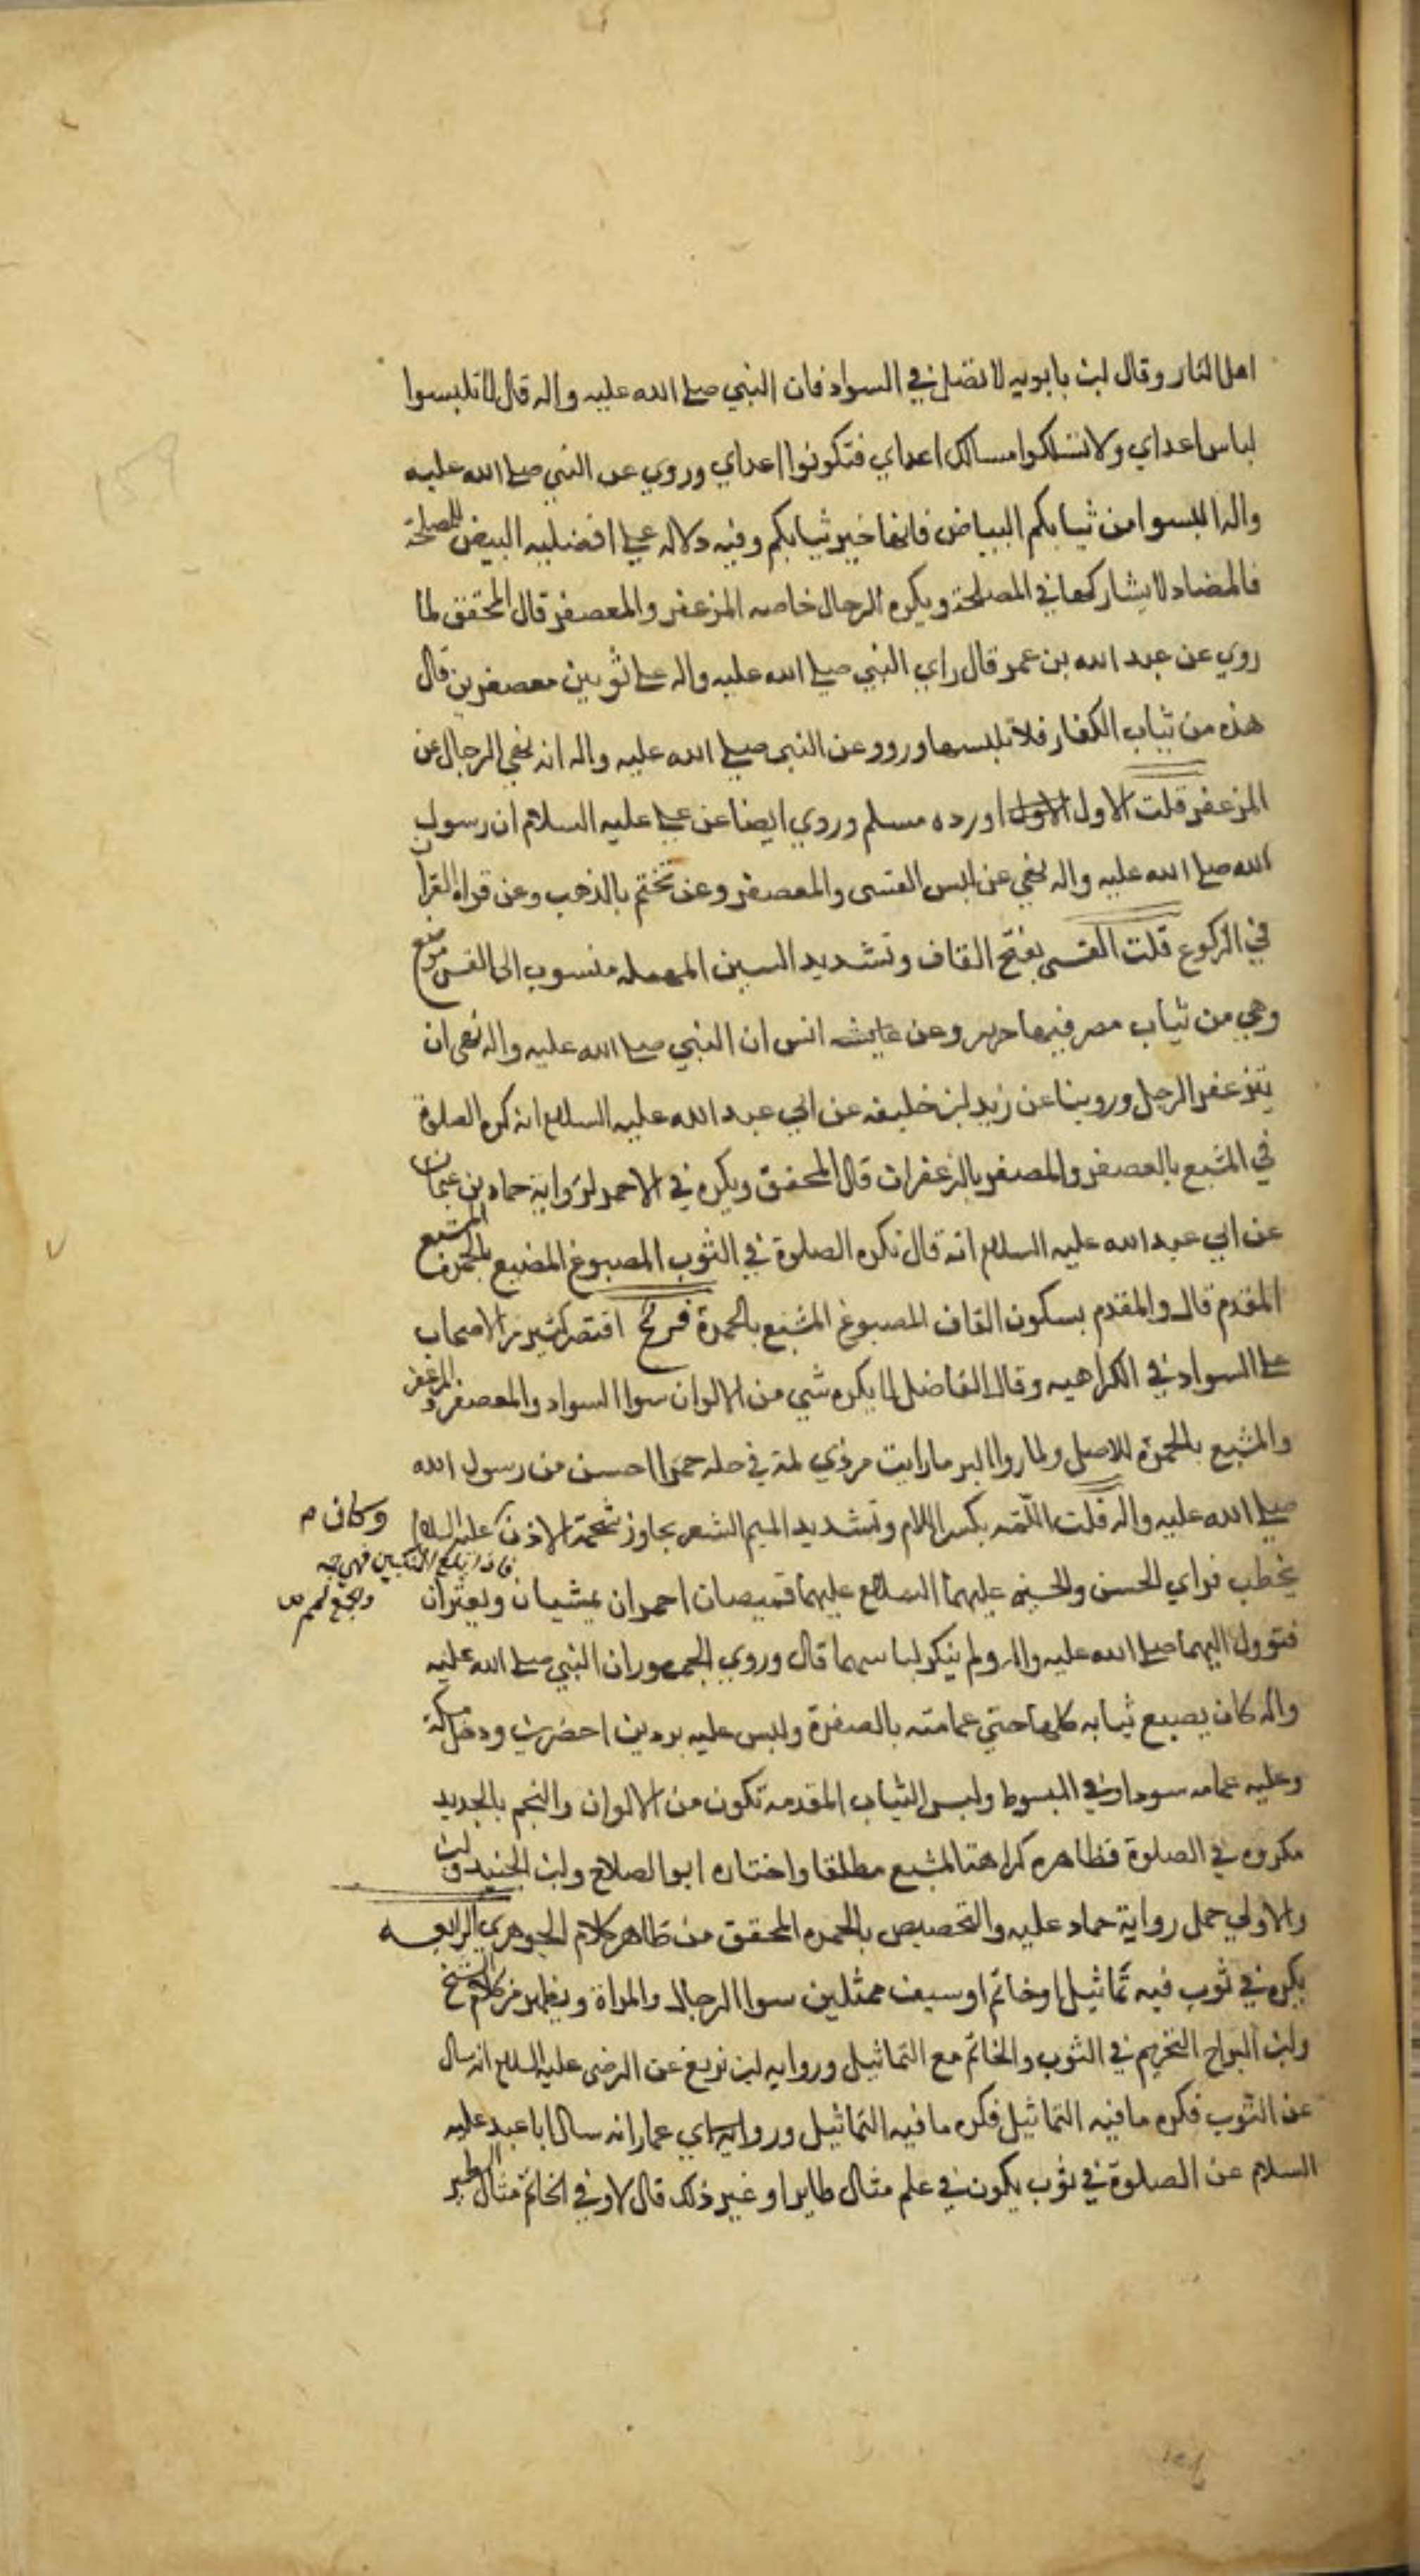 اهل النار وقال ابن بابويه لا تصل في السواد فان النبي صلى الله عليه واله قال لا تلبسوا
لباس اعداي ولا تسلكوا مسالك اعداي فتكونوا اعداي وروي عن النبي صلى الله عليه
واله البسوا من ثيابكم البياض فانها خير ثيابكم وفيه دلاله على افضليه البيض للمصلحة
فالمضاد لا يشاركها في المصلحة ويكره الرجال خاصه المزعفر والمعصفر قال المحقق لما
روي عن عبد الله بن عمر قال راي النبي صلى الله عليه واله على ثوبين معصفرين قال
هذه من ثياب الكفار فلا تلبسها ورووعن النبي صلى الله عليه واله انه نهى الرجال عن
المزعفر قلت الاول الاول اورده مسلم وروي ايضا عن علي عليه السلام ان رسول
الله صلى الله عليه واله نهي عن لبس القسى والمعصفر وعن تختم بالذهب وعن قراه القران
في الركوع قلت القسى بفتح القاف وتشديد السين المهمله منسوب الى القس موضع
وهي من ثياب مصر فيها حرير وعن عايشه انس ان النبي صلى الله عليه واله نهى ان
يتزعفر الرجل وروينا عن زيد بن خليفه عن ابي عبد الله عليه السلام انه كره الصلوة
في المشبع بالعصفر والمصفر بالزعفران قال المحقق ويكره في الاحمر لرواية حماد بن عثمان
عن ابي عبد الله عليه السلام انه قال تكره الصلوة في الثوب المصبوغ المصبع بالحمرة المشبع
المقدم قال والمقدم بسكون القاف المصبوغ المشبع بالحمرة فرع اقتصر كثير من الاصحاب
على السواد في الكراهيه وقال الفاضل لا يكره شي من الالوان سوا السواد والمعصفر والمزعفر
والمشبع بالحمرة للاصل ولما روا البر ما رايت من ذي لمة في حله حمرا احسن من رسول الله
صلى الله عليه واله قلت اللمه بكسر اللام وتشديد الميم الشعر يجاوز شحمة الاذن عليه السلام وكان م
فاذا بلغ المنكبين فهي جمه
والجمع لمم ص
يخطب فراي الحسن والحسين عليهما السلام عليهما قميصان احمران يمشيان ويعثران
فنزول اليهما صلى الله عليه واله ولم ينكر لباسهما قال وروي الجمهور ان النبي صلى الله عليه
واله كان يصبع ثيابه كلها حتي عمامته بالصفرة ولبس عليه بردين اخضرين ودخل مكة
وعليه عمامه سودا وفي المبسوط ولبس الثياب المقدمه تكون من الالوان والتختم بالحديد
مكروه في الصلوة فظاهره كراهة المشبع مطلقا واختاره ابو الصلاح وابن الجنيد وابن
والاولي حمل رواية حماد عليه والتخصيص بالحمره المحقق من ظاهر كلام الجوهري الرابعه
يكره في ثوب فيه تماثيل او خاتم او سيف ممثلين سوا الرجال والمراة ويظهر من كلام الشيخ
وابن البراج التحريم في الثوب والخاتم مع التماثيل وروايه ابن بزيع عن الرضى عليه السلام انه سال
عن الثوب فكره ما فيه التماثيل فكره ما فيه التماثيل ورواية اي عمار انه سال ابا عبد عليه
السلام عن الصلوة في ثوب يكون في علم مثال طاير او غير ذلك قال لا وفي الخاتم مثال الطير